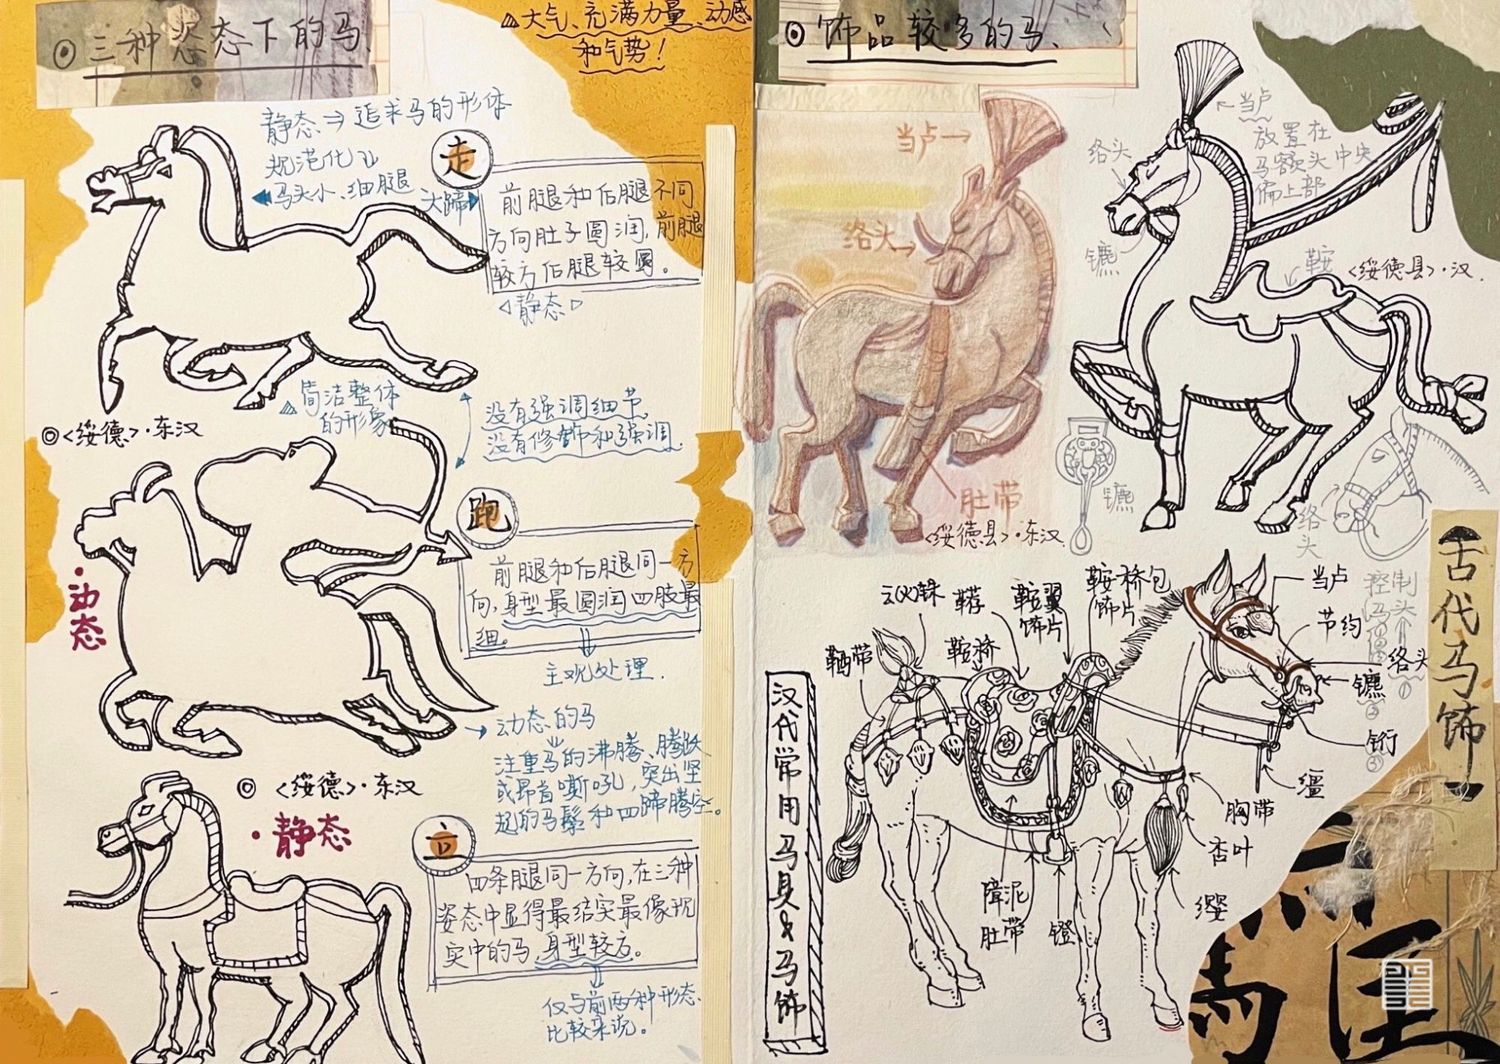 ⊙三种姿态下的马.
△大气、充满力量、动感
和气势！
静态→追求马的形体
规范化
马头小、细腿 大蹄
走
前腿和后腿不同
方向肚子圆润,前腿
较方后腿较圆。
<静态>
简洁整体
的形象
没有强调细节
没有修饰和强调.
◎<绥德>·东汉
·动态
跑
前腿和后腿同一方
向,身型最圆润四肢最
细。
主观处理.
→动态的马
注重马的沸腾、腾跃
或昂首嘶吼,突出坚
起的马鬃和四蹄腾空。
◎<绥德>·东汉
·静态
立
四条腿同一方向,在三种
姿态中显得最结实最像现
实中的马,身型较方。
仅与前两种形态
比较来说。
⊙饰品较多的马、
当卢→
络头→
肚带
<绥德县>·东汉
←当卢
放置在
马额头中央
偏上部
络头
镳
鞍
<绥德县>·汉.
镳
络头
控制
古代马饰
汉代常用马具&马饰
鞧带
鞍桥
鞯
鞍翼
饰片
鞍桥包
饰片
当卢
节约
络头①
镳②
衔③
缰
胸带
杏叶
缨
障泥
肚带
镫